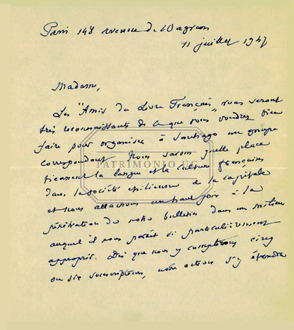 Paris 148 avenue de Wagram
11 juillet 1947
Madame,
Les "Amis du Livre Français" vous seront
très reconnaissants de ce que vous voudrez bien
faire pour organiser à Santiago un groupe
correspondant. Nous savons quelle place
tiennent la langue et la culture françaises
dans la société chilienne de la capitale
et nous attachons un haut prix à la
pénétration de notre bulletin dans un milieu
auquel il nous paraît si particulièrement
approprié. Dès que nous y compterons cinq
ou six souscripteurs, notre action s'y étendra
PATRIMONIO UC